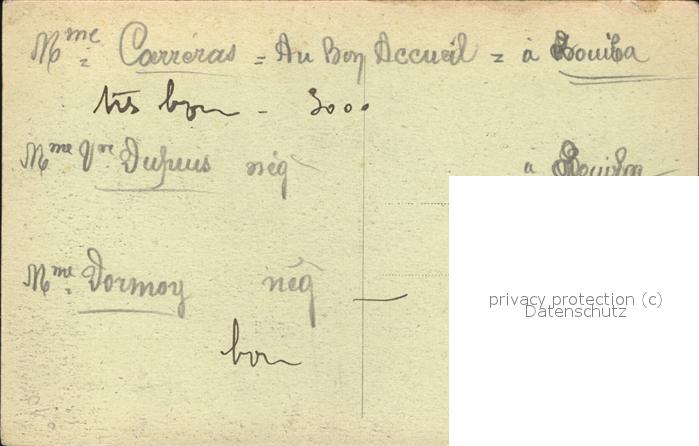 Mme Carréras = Au Bon Accueil = à Bouïba
très bon - 3000
Mme Vve Dupuis nég
à
Mme Dormoy nég —
bon
privacy protection (c)
Datenschutz